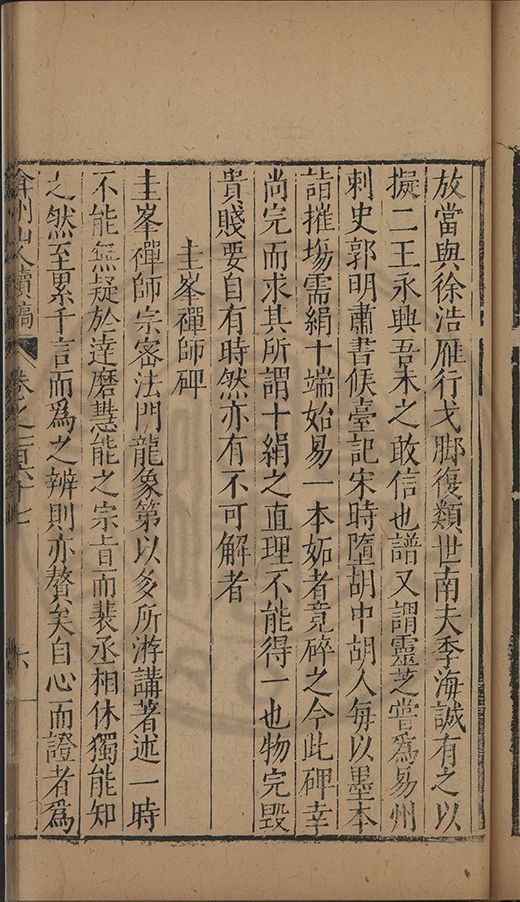 放當與徐浩雁行戈脚復類世南夫季海誠有之以
擬二王永興吾未之敢信也譜又謂靈芝嘗爲易州
刺史郭明肅書候臺記宋時墮胡中胡人每以墨本
詣搉塲需絹十端始易一本妬者竟碎之今此碑幸
尚完而求其所謂十絹之直理不能得一也物完毀
貴賤要自有時然亦有不可解者
圭峯禪師碑
圭峯禪師宗密法門龍象第以多所游講著述一時
不能無疑於達磨慧能之宗旨而裴丞相休獨能知
之然至累千言而爲之辨則亦贅矣自心而證者爲
弇州山人續稿 卷之一百六十七 六